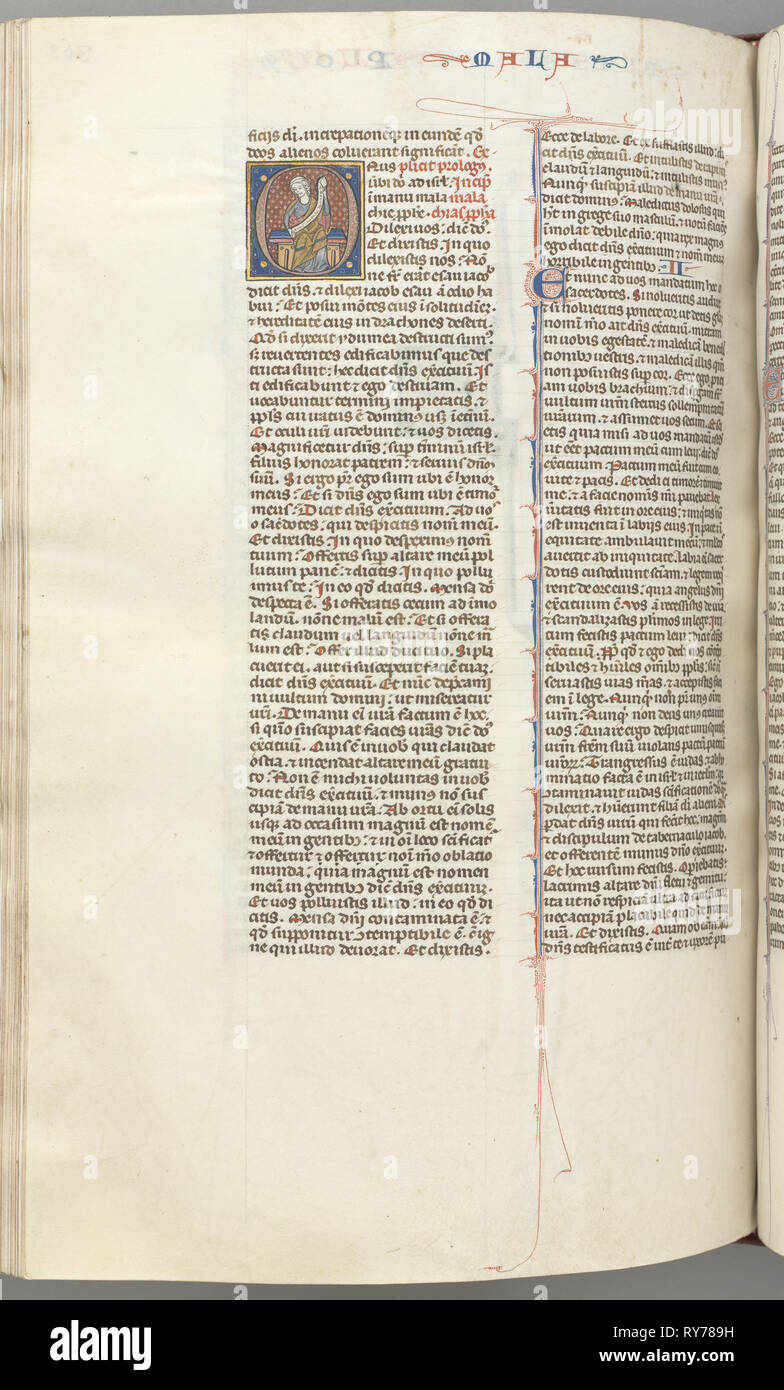 MALA
ficijs dī. increpationēqꝫ in eundē qđ
deos alienos coluerant significāt. Ex
Nus plicit prologꝰ.
ūbi dō ad isrł. Incip
ī manu mala mala
chie pphe. chias ppha
Dilexi vos: dic̄ dn̄s.
Et dixistis. In quo
dilexistis nos? Nō
ne fr̄ erat esau iacob
dicit dn̄s: & dilexi iacob esau ā odio ha
bui: Et posui mōtes eius ī solitudinē:
& hereditatē eius in drachones deserti.
Qđ si dixerit ydumea destructi sumꝰ:
sꝫ reuertentes edificabimus que des
tructa sunt: hec dicit dn̄s exercituū. Is
ti edificabunt & ego destruam. Et
uocabuntur termini impietatis: &
ppl̄s cui iratus ē dominꝰ usqꝫ ī et̄nū.
Et oculi ur̄i uidebunt: & uos dicetis.
Magnificetur dn̄s: sup tm̄inū isrł.
filius honorat patrem: & seruus dn̄m
suū. Si ergo pr̄ ego sum ubi ē honor
meus: Et si dn̄s ego sum ubi ē timor
meus: Dicit dn̄s exercituum. Ad uos
o sac̄dotes: qui despicitis nom̄ meū.
Et dixistis: In quo despeximus nom̄
tuum? Offertis sup altare meū pol
lutum panē: & dicitis. In quo pollu
imus te? In eo qđ dicitis. Mensa dn̄i
despecta ē. Si offeratis cecum ad īmo
landū. nōne malū est? Et si offera
tis claudum uel languidū nōne ma
lum est? Offer illud duci tuo. Si pla
cuerit ei. aut si susceperit faciē tuā:
dicit dn̄s exercituū. Et nūc depcami
ni uultum domini: ut misereatur
ur̄i. De manu eī ur̄a factum ē hoc.
si quo suscipiat facies ur̄as dic̄ dn̄s
exercituū. Quis ē in uob qui claudat
ostia: & incendat altare meū gratui
to? Non ē michi uoluntas in uob
dicit dn̄s exercituū. & munꝰ nō sus
cipiā de manu ur̄a. Ab ortu eī solis
usqꝫ ad occasum magnū est nomē
meū in gentibꝫ: & in oī loco sc̄ificat
& offertur & offertur noī mō oblatio
munda: quia magnū est nomen
meū in gentibꝫ dic̄ dn̄s exercituū.
Et uos polluistis illud: in eo qđ di
citis. Mensa dn̄i contaminata ē: &
qđ supponitur ꝯtemptibile ē. ē ig
ne qui illud deuorat. Et dixistis.
Ecce de labore. Et exsufflastis illud: di
cit dn̄s exercituū. Et intulistis de rapinis
claudū & languidū: & intulistis munꝰ.
Nunqꝫ suscipiā illud de manu ur̄a:
dicit dominꝰ? Maledictus dolosus qui
ht̄ in grege suo masculū: & uotū faciens
īmolat debile dn̄o: quia rex magnꝰ
ego dicit dn̄s exercituū & nom̄ meū
horribile in gentibꝫ. II
Et nunc ad uos mandatum hoc o
sacerdotes. Si nolueritis audire
& si nolueritis ponere cor ut detis glā
nomī mō ait dn̄s exercituū: mittam
in uobis egestatē: & maledicā bened
tionibꝫ uestris. & maledicā illis qm̄
non posuistis sup cor. Ecce ego pici
am uobis brachium: & dispergam sr̄
uultum ur̄m stercus sollempnitatū
ur̄arum: & assumet uos secum. Et sci
etis quia misi ad uos mandatū istud
ut ēet pactum meū cum leui: dic̄ dn̄s
exercituum. Pactum meū fuit cum eo
uite & pacis. Et dedi ei timorē & timuit
me: & a facie nomīs mī pauebat. lex
ūitatis fuit in ore eius: & iniqtas nō
est inuenta ī labijs eius. In pace & ī
equitate ambulauit mecū: & mltos
auertit ab iniquitate. Labia eī sacer
dotis custodiunt sc̄iam. & legem reqi
rent de ore eius: quia angelus dn̄i
exercituum ē. Uos ā recessistis de uia
& scandalizastis plimos in lege. Irri
tum fecistis pactum leui: dicit dn̄s
exercituū. Pp qđ & ego dedi uos ꝯtēp
tibiles & hūiles omībꝫ pplis: sic nō
seruastis uias meas. & accepistis faci
em ī lege. Nunqꝫ non pr̄ unꝰ oīm
ur̄m? Nunqꝫ non deus unꝰ creauit
uos? Quare ergo despicit unusqꝫsqꝫ
ur̄m fr̄em suū uiolans pactū patrū
ur̄orꝫ? Transgressus ē iudas: & abho
minatio facta ē in isrł & in ierłm: qa
ꝯtaminauit iudas sc̄ificationē dn̄i quā
dilexit. & habuit filiā dī alieni. Dis
pdat dn̄s uirū qui fecit hoc. magrm̄
& discipulum de tabernaculo iacob.
et offerentē munus dn̄o exercituū.
Et hoc rursum fecistis. Opiebatis
lacrimis altare dn̄i fletu & gemitu:
ita ut nō respiciā ultra ad sacrificiū
nec accipiā placabile quid de manu
ur̄a. Et dixistis. Quam ob cām: Quia
dn̄s testificatus ē int̄ te & uxorē pu
alamy
RY789H
Image ID: RY789H
www.alamy.com